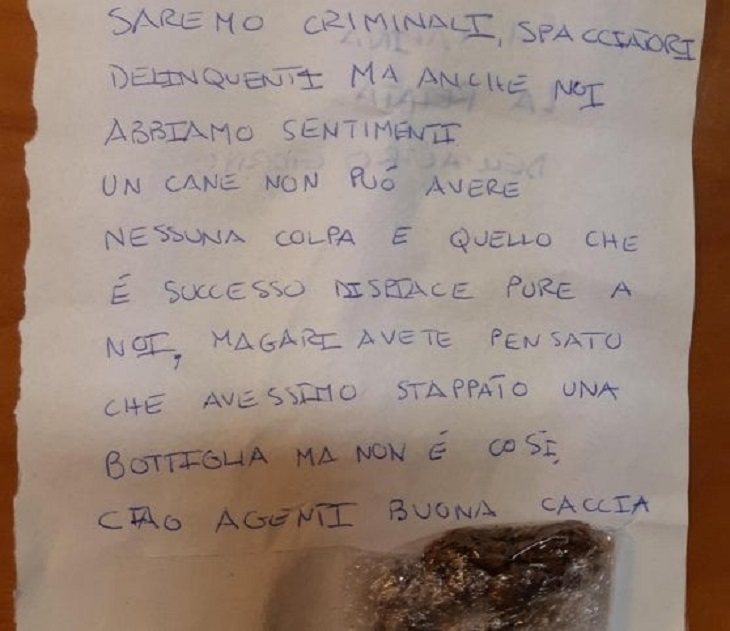 SAREMO CRIMINALI, SPACCIATORI
DELINQUENTI MA ANCHE NOI
ABBIAMO SENTIMENTI
UN CANE NON PUÓ AVERE
NESSUNA COLPA E QUELLO CHE
É SUCCESSO DISPIACE PURE A
NOI, MAGARI AVETE PENSATO
CHE AVESSIMO STAPPATO UNA
BOTTIGLIA MA NON É COSÌ,
CIAO AGENTI BUONA CACCIA